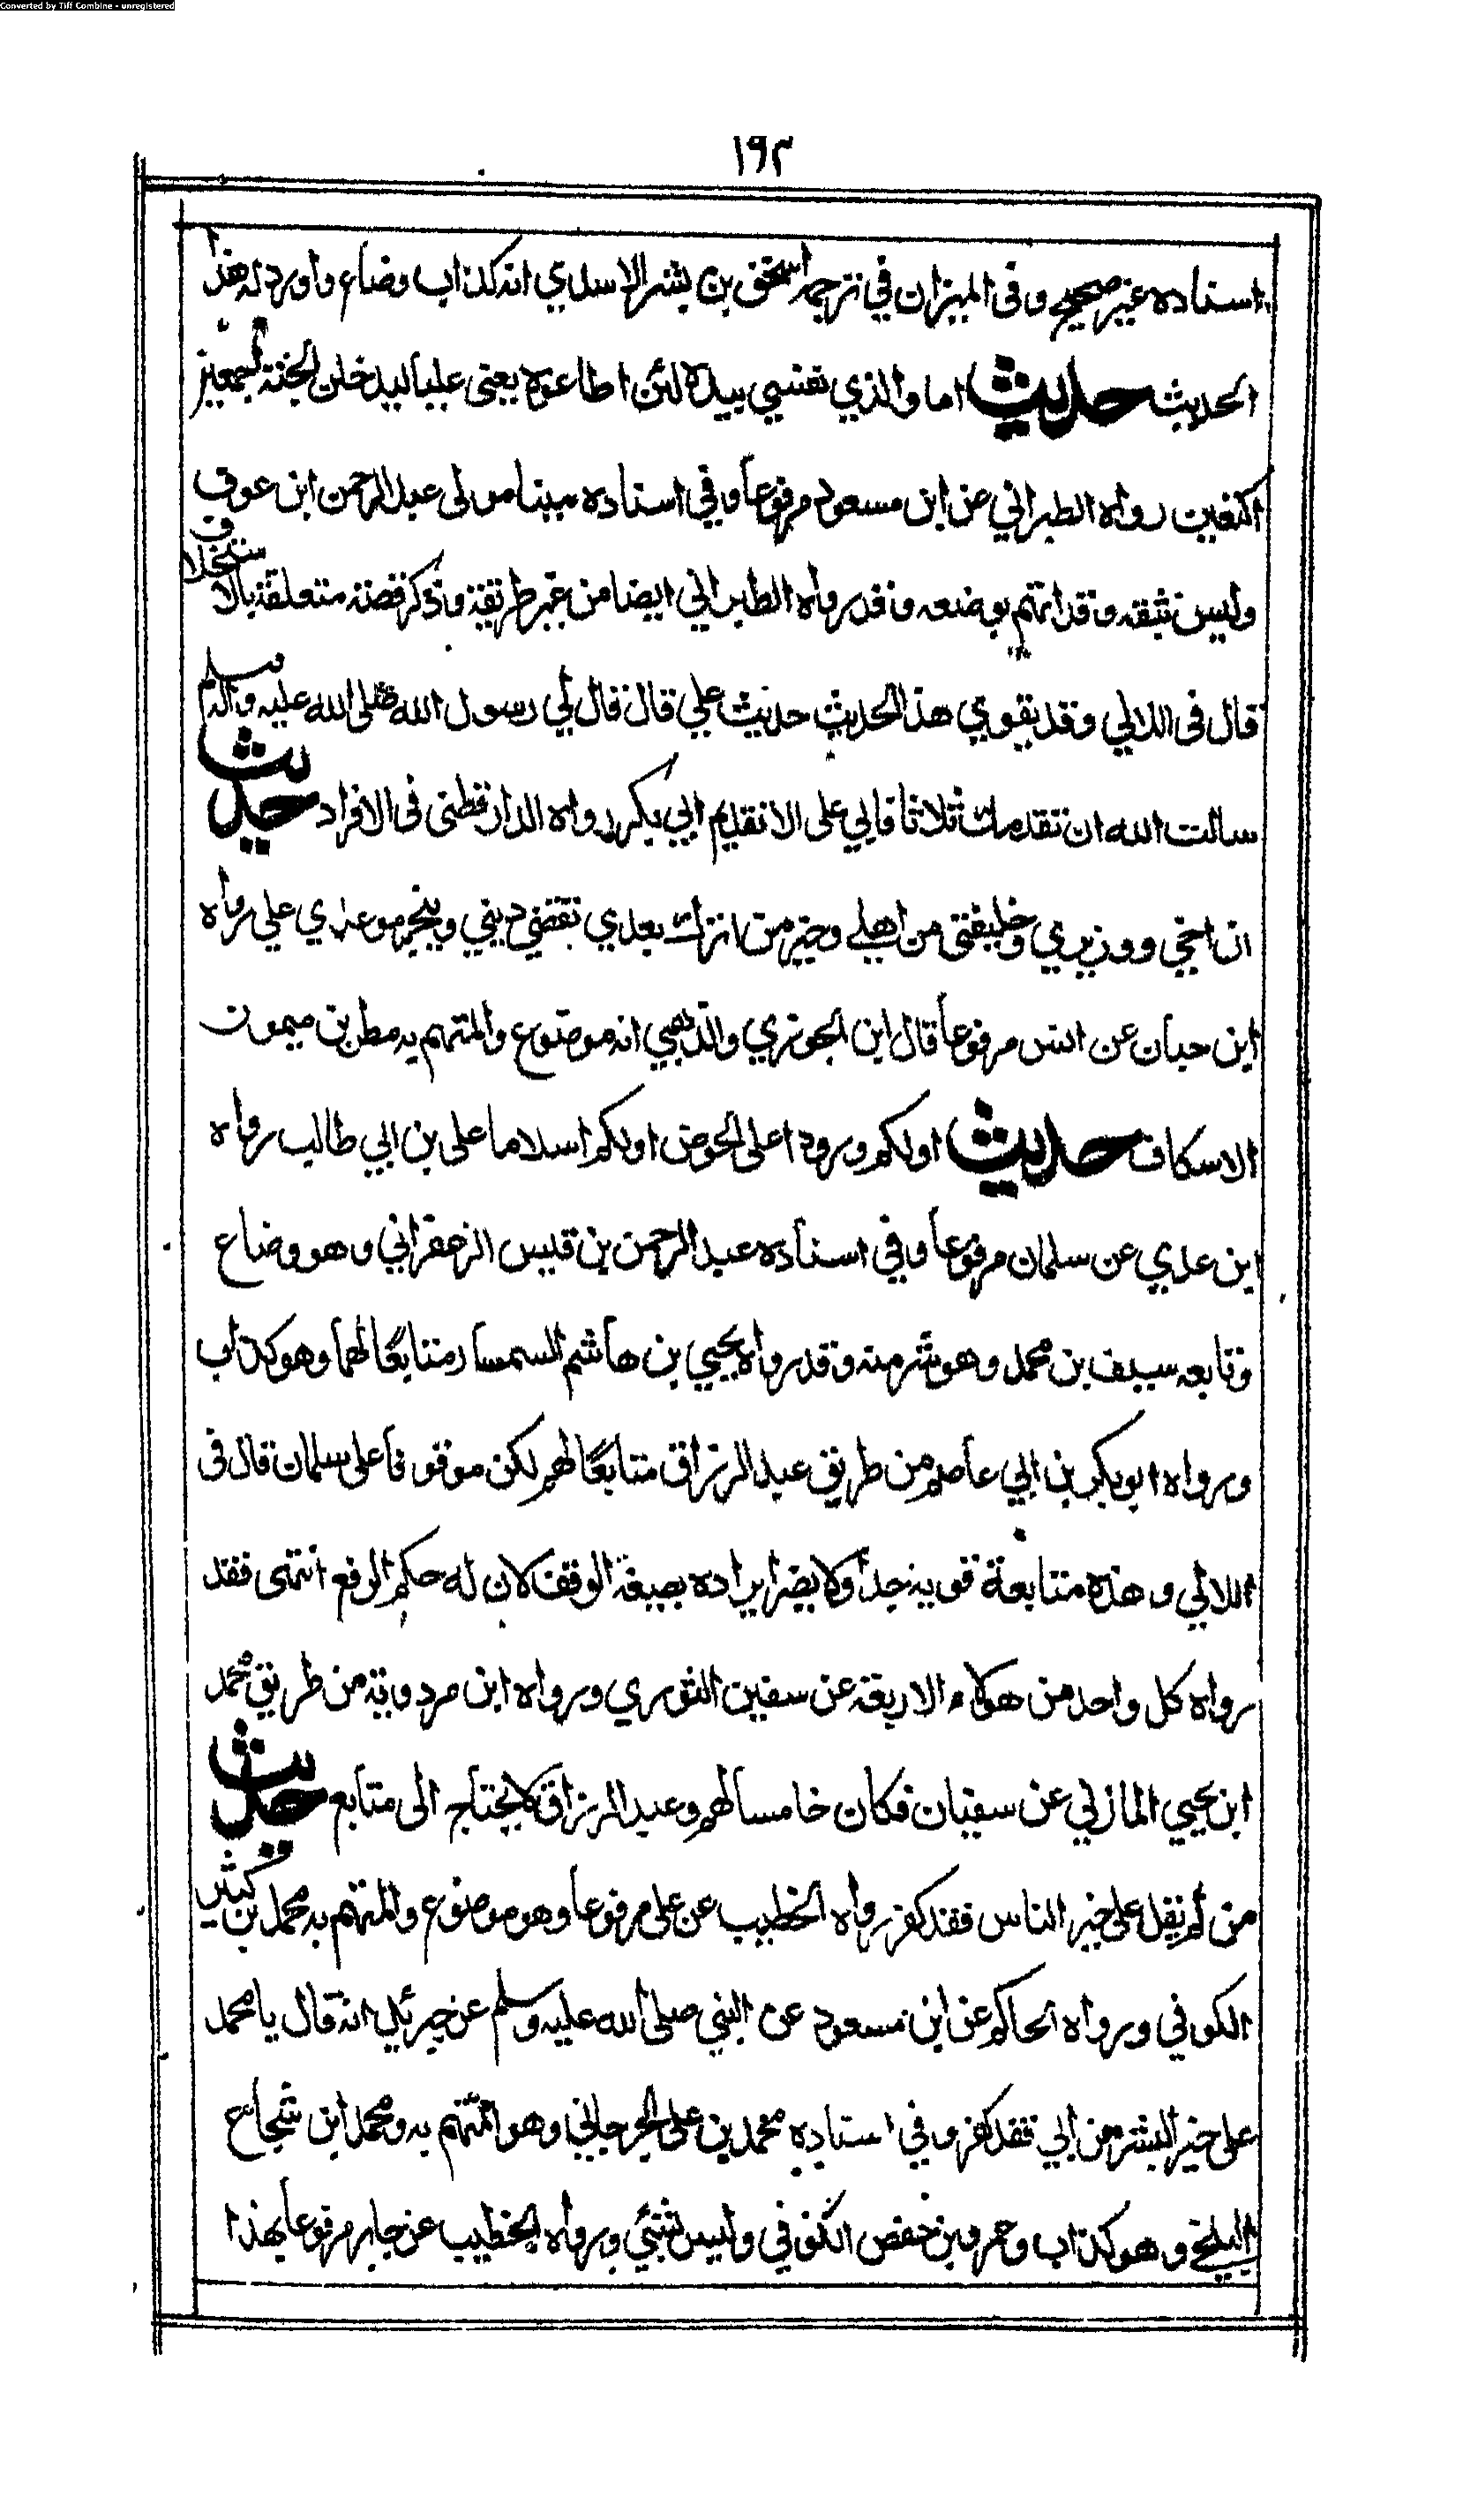 Converted by Tiff Combine - unregistered
١٩٢
اسناده غير صحيح وفى الميزان في ترجمة اسحق بن بشر الاسدي انه كذاب وضاع واورد له هذا
الحديث حديث اما والذي نفسي بيده لئن اطاعوه يعنى عليا ليدخلن الجنة اجمعين
اكتعين رواه الطبراني عن ابن مسعود مرفوعا وفي اسناده مينا مولى عبد الرحمن ابن عوف
وليس بثقه وقد اتهم بوضعه وقد رواه الطبراني ايضا من غير طريقه وذكر قصته متعلقة بالاستخلاف
قال فى اللالي وقد يقوي هذا الحديث حديث علي قال قال لي رسول الله صلى الله عليه وآله وسلم
سالت الله ان تقدمك ثلاثا فابي على الا تقديم ابي بكر رواه الدارقطنى فى الافراد حديث
ان اخي ووزيري وخليفتي من اهلي وخير من اترك بعدي يقضي ديني وينجز موعدي علي رواه
ابن حبان عن انس مرفوعا قال ابن الجوزي والذهبي انه موضوع والمتهم به مطر بن ميمون
الاسكاف حديث اولكم ورودا على الحوض اولكم اسلاما على بن ابي طالب رواه
ابن عدي عن سلمان مرفوعا وفي اسناده عبد الرحمن بن قيس الزعفراني وهو وضاع
وتابعه سيف بن محمد وهو شر منه وقد رواه يحيي بن هاشم السمسار متابعًا لهما وهو كذاب
ورواه ابو بكر بن ابي عاصم من طريق عبد الرزاق متابعًا لهم لكن موقوفا على سلمان قال فى
اللالي وهذه متابعة قوية جدا ولا يضر ايراده بصيغة الوقف لان له حكم الرفع انتهى فقد
رواه كل واحد من هولاء الاربعة عن سفين الثوري ورواه ابن مردوية من طريق محمد
ابن يحيي المازني عن سفيان فكان خامسا لهم وعبد الرزاق لا يحتاج الى متابع حديث
من لم يقل على خير الناس فقد كفر رواه الخطيب عن على مرفوعا وهو موضوع والمتهم به محمد بن كثير
الكوفي ورواه الحاكم عن ابن مسعود عن النبي صلى الله عليه وسلم عن جبرئيل انه قال يا محمد
على خير البشر من ابي فقد كفر وفي اسناده محمد بن على الجرجاني وهو المتهم به ومحمد ابن شجاع
البلخي وهو كذاب وعمرو بن حفص الكوفي وليس بشئي ورواه الخطيب عن جابر مرفوعا بهذا